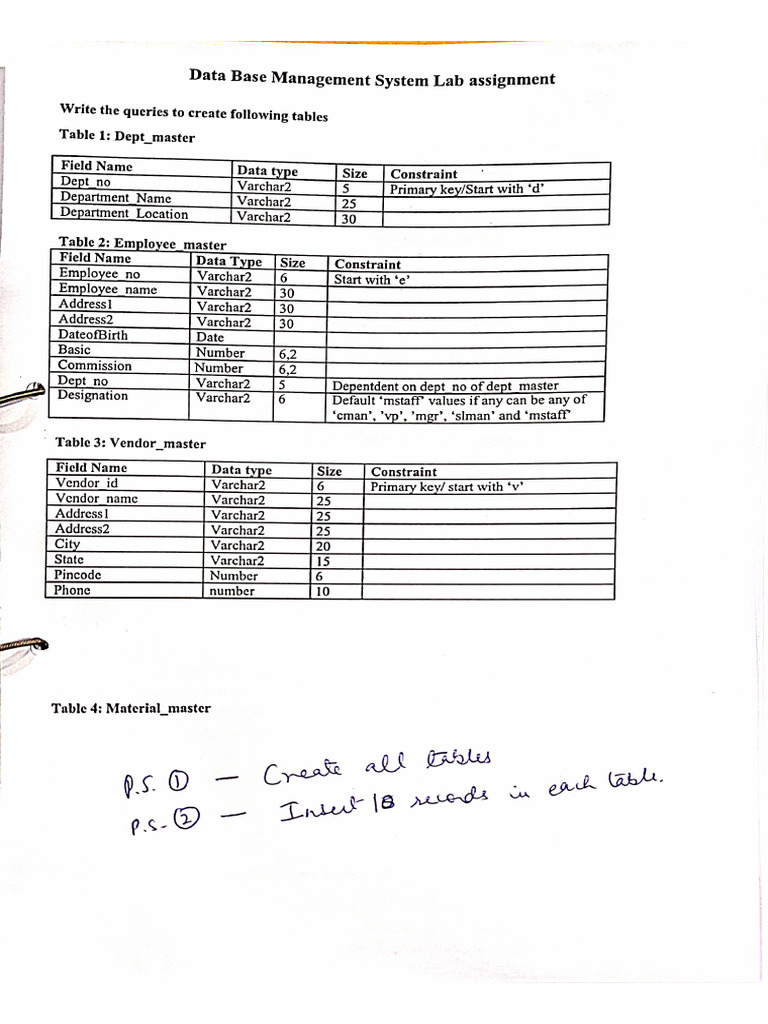 Data Base Management System Lab assignment
Write the queries to create following tables
Table 1: Dept_master
Field Name Data type Size Constraint
Dept_no Varchar2 5 Primary key/Start with ‘d’
Department_Name Varchar2 25
Department_Location Varchar2 30
Table 2: Employee_master
Field Name Data Type Size Constraint
Employee_no Varchar2 6 Start with ‘e’
Employee_name Varchar2 30
Address1 Varchar2 30
Address2 Varchar2 30
DateofBirth Date
Basic Number 6,2
Commission Number 6,2
Dept_no Varchar2 5 Depentdent on dept_no of dept_master
Designation Varchar2 6 Default ‘mstaff’ values if any can be any of
‘cman’, ’vp’, ’mgr’, ‘slman’ and ‘mstaff’
Table 3: Vendor_master
Field Name Data type Size Constraint
Vendor_id Varchar2 6 Primary key/ start with ‘v’
Vendor_name Varchar2 25
Address1 Varchar2 25
Address2 Varchar2 25
City Varchar2 20
State Varchar2 15
Pincode Number 6
Phone number 10
Table 4: Material_master
P.S. ① — Create all tables
P.S. ② — Insert 10 records in each table.